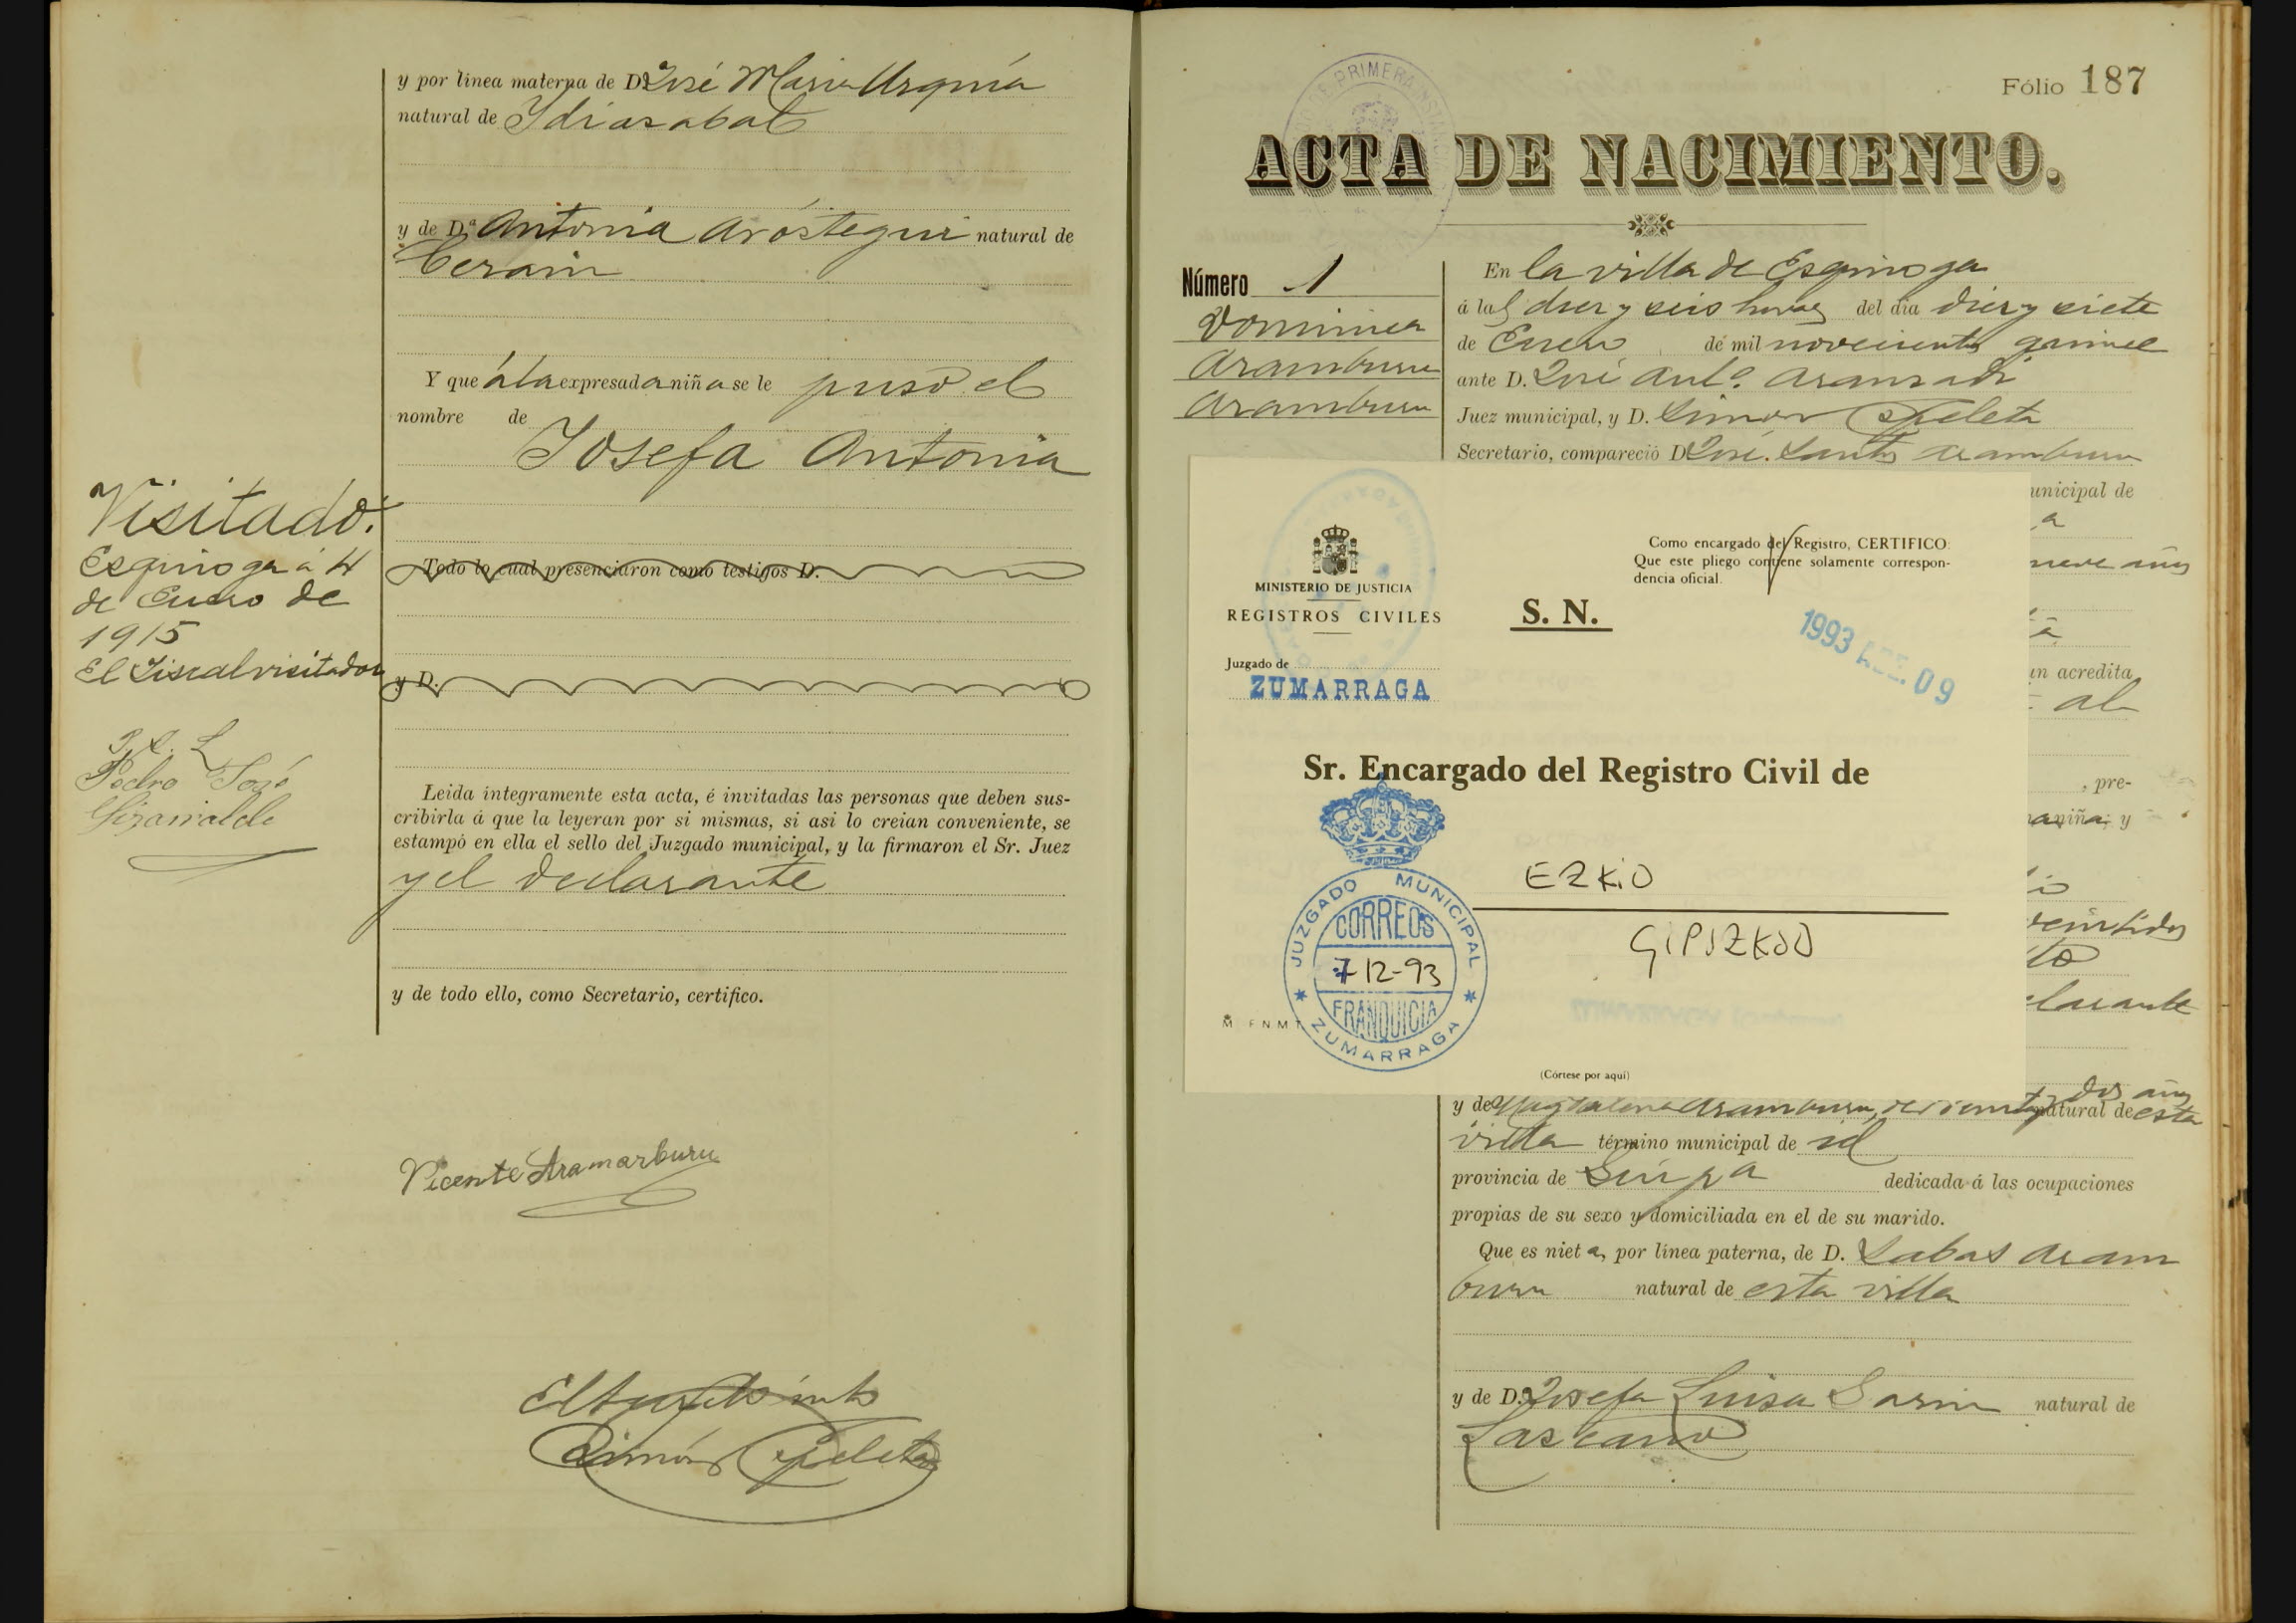 y por línea materna de D. José Maria Urquía
natural de Ydiazabal
y de D.ª Antonia Aróstegui natural de
Cerain
Y que á la expresada niña se le puso el
nombre de
Josefa Antonia
Visitado:
Esquioga á 4
de Enero de
1915
El Fiscal visitador
Pedro José
Todo lo cual presenciaron como testigos D.
y D.
Leida íntegramente esta acta, é invitadas las personas que deben sus-
cribirla á que la leyeran por si mismas, si asi lo creian conveniente, se
estampó en ella el sello del Juzgado municipal, y la firmaron el Sr. Juez
y el declarante
y de todo ello, como Secretario, certifico.
Vicente Aramarburu
Simón
Fólio 187
ACTA DE NACIMIENTO.
Número 1
Dominica
Aramburu
Aramburu
En la villa de Esquioga
á las diez y seis horas del dia diez y siete
de Enero de mil novecientos quince
ante D. José Ant.º Aranzadi
Juez municipal, y D. Simon
Secretario, compareció D. José Santos Aramburu
unicipal de
a
nueve años
un acredita
al
, pre-
niña; y
veintidos
to
clarante
MINISTERIO DE JUSTICIA
REGISTROS CIVILES
Juzgado de
ZUMARRAGA
S. N.
Como encargado del Registro, CERTIFICO:
Que este pliego contiene solamente correspon-
dencia oficial.
1993 ABE. 09
Sr. Encargado del Registro Civil de
EZKIO
GIPUZKOA
JUZGADO MUNICIPAL
CORREOS
7-12-93
FRANQUICIA
ZUMARRAGA
F N M T
(Córtese por aquí)
y de Magdalena Aramburu, de treinta y dos años natural de esta
villa término municipal de id
provincia de Guipª dedicada á las ocupaciones
propias de su sexo y domiciliada en el de su marido.
Que es nieta, por línea paterna, de D. Sabas Aram
buru natural de esta villa
y de D.ª Josefa Luisa Sarin natural de
Lazcano